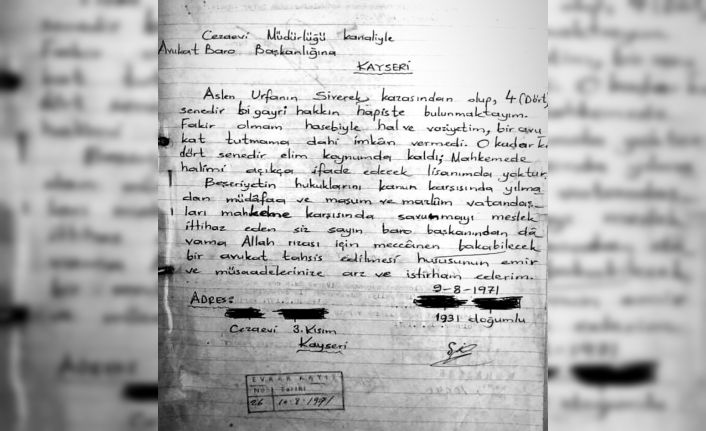 Cezaevi Müdürlüğü kanaliyle
Avukat Baro Başkanlığına
KAYSERİ
Aslen Urfanın Siverek kazasından olup, 4 (Dört)
senedir bigayri hakkın hapiste bulunmaktayım.
Fakir olmam hasebiyle hal ve vaziyetim, bir avu
kat tutmama dahi imkân vermedi. O kadar k
dört senedir elim koynumda kaldı; Mahkemede
halimi açıkça ifade edecek lisanımda yoktur.
Beşeriyetin hukuklarını kanun karşısında yılma
dan müdâfaa ve masum ve mazlûm vatandaş-
ları mahkeme karşısında savunmayı meslek
ittihaz eden siz sayın baro başkanından dâ
vama Allah rızası için meccânen bakabilecek
bir avukat tahsis edilmesi hususunun emir
ve müsaadelerinize arz ve istirham ederim.
9-8-1971
ADRES:
1931 doğumlu
Cezaevi 3. Kısım
Kayseri
EVRAK KAYIT
NO TARİHİ
26 10.8.1971